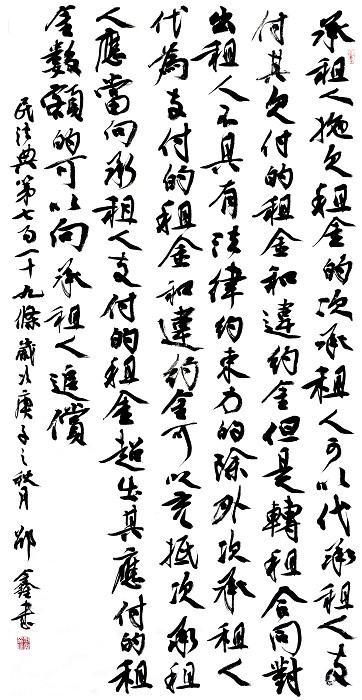 承租人拖欠租金的次承租人可以代承租人支
付其欠付的租金和違約金但是轉租合同對
出租人不具有法律約束力的除外次承租人
代為支付的租金和違約金可以充抵次承租
人應當向承租人支付的租金超出其應付的租
金數額的可以向承租人追償
民法典第七百一十九條歲次庚子之秋月 鑫書